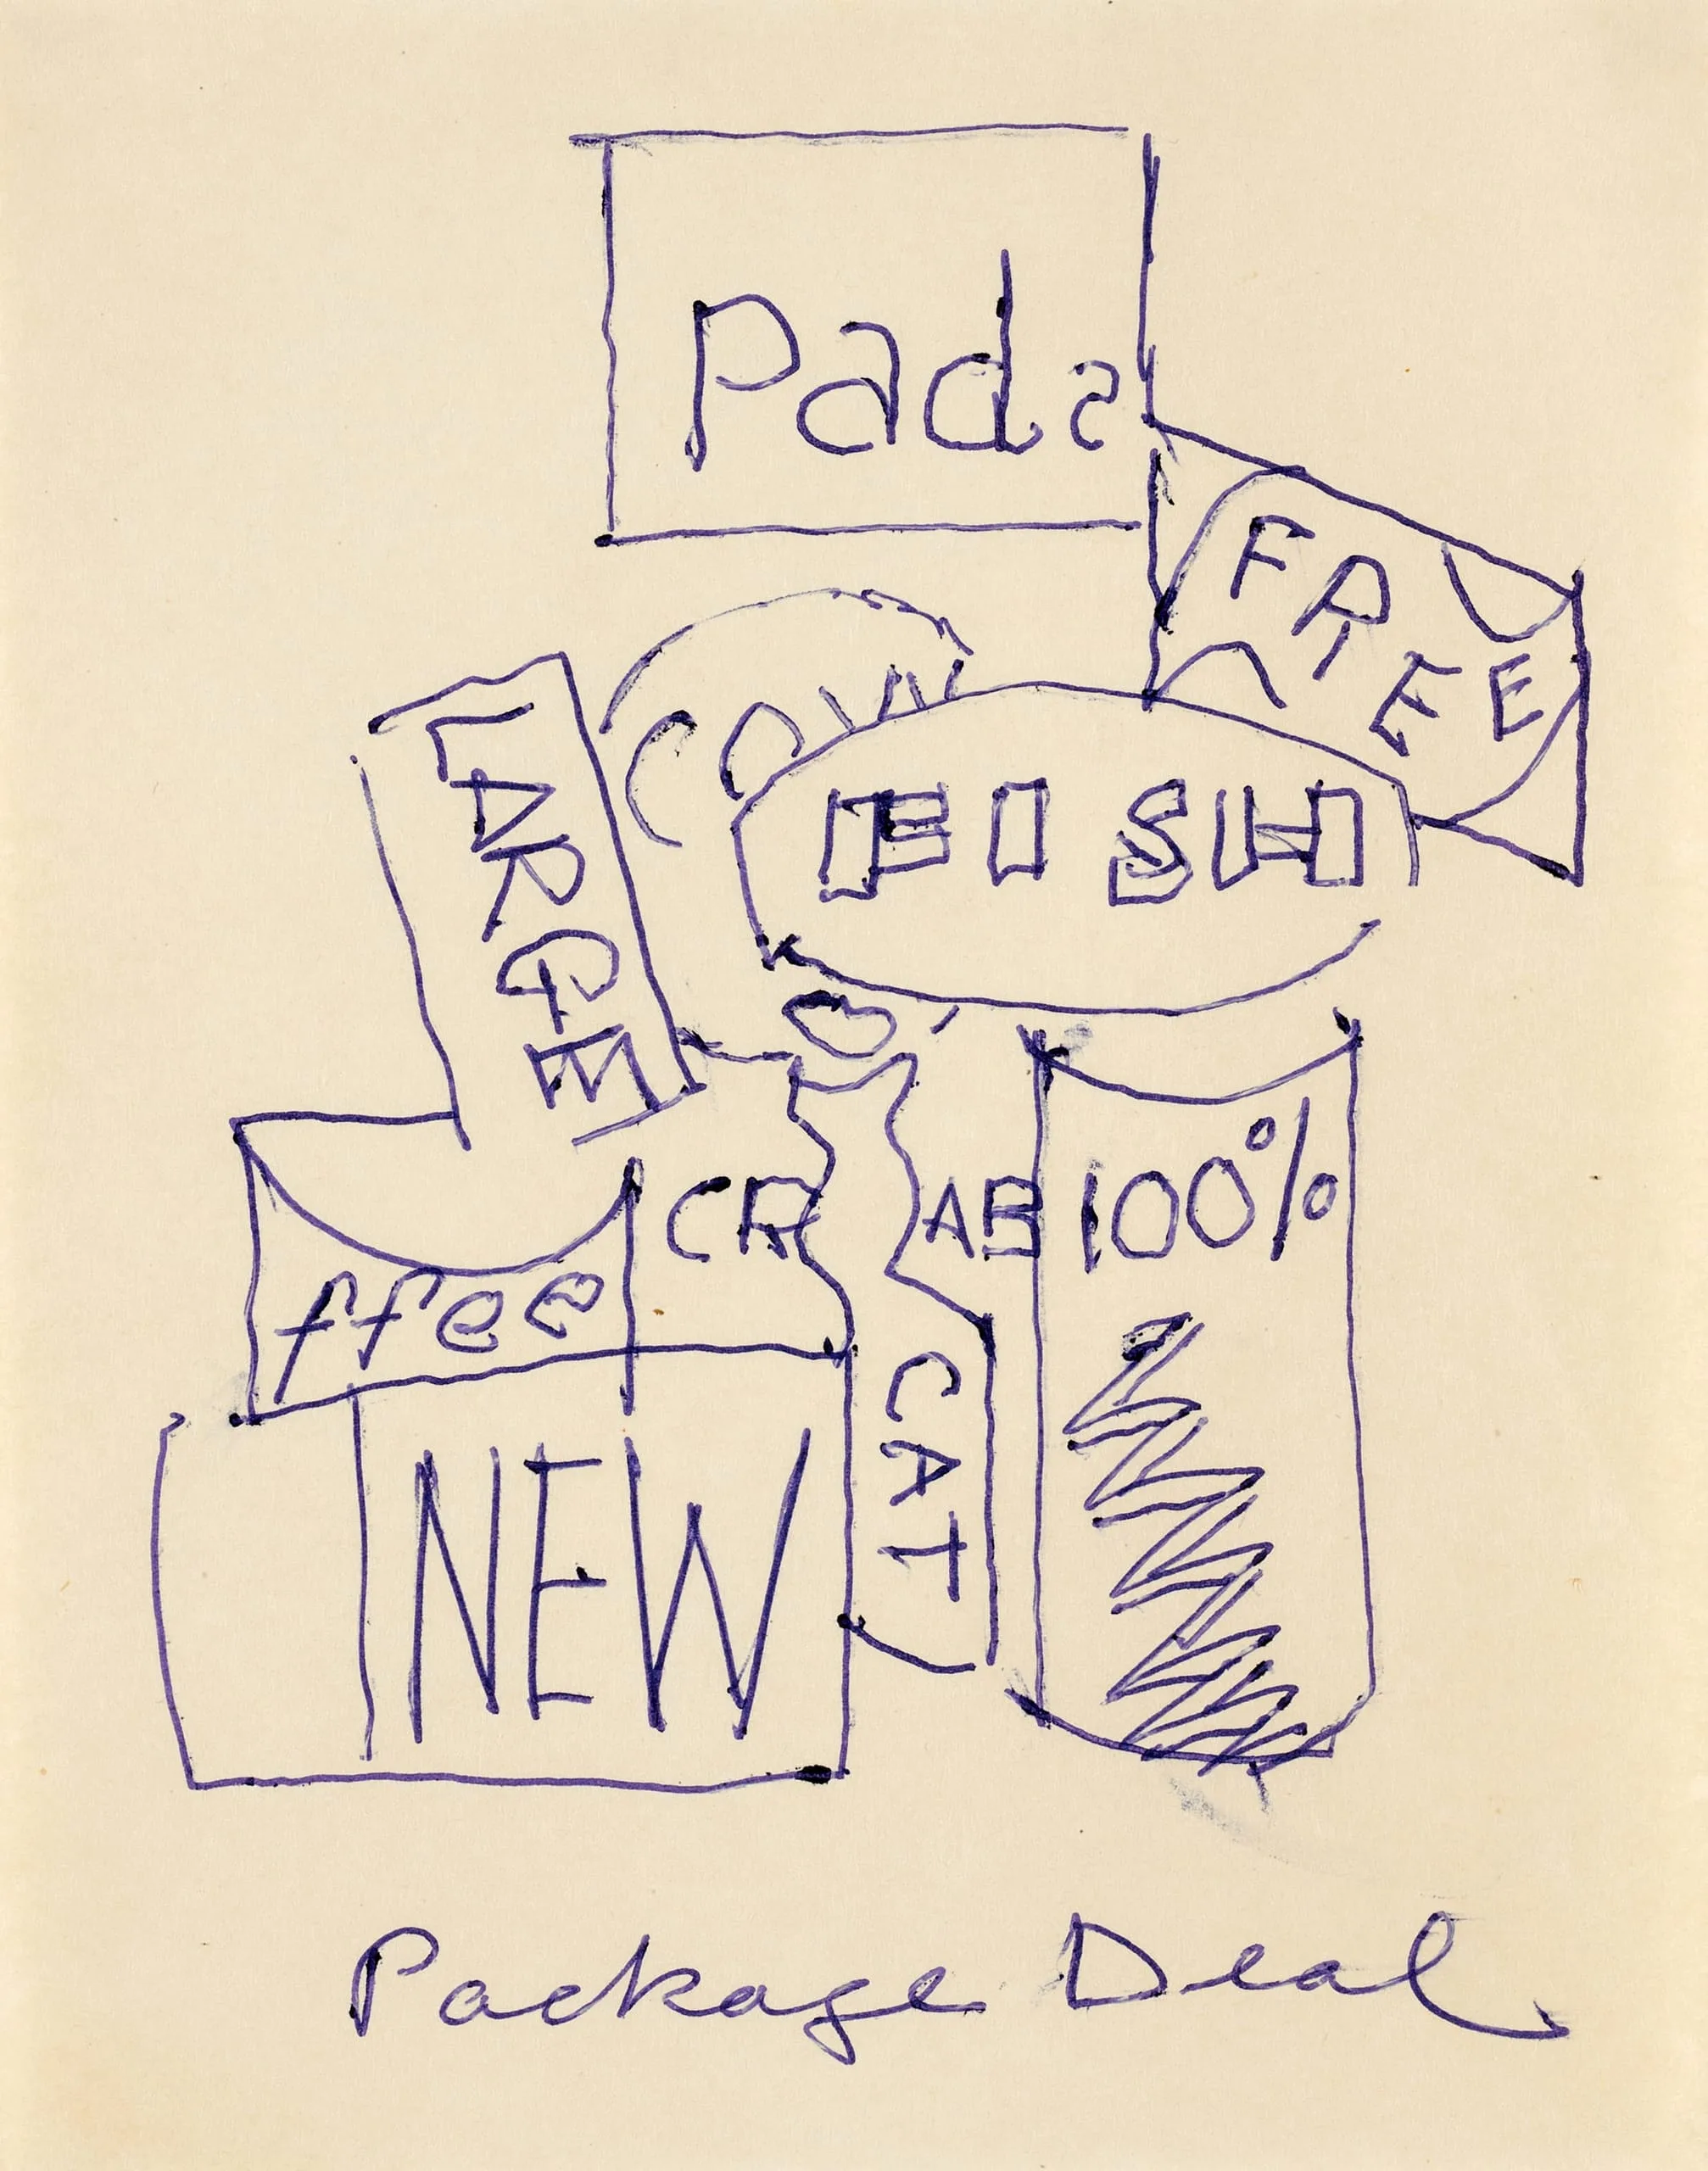 Pads
FREE
LARGE
COW
FISH
CR AB
100%
ffee
CAT
NEW
Package Deal